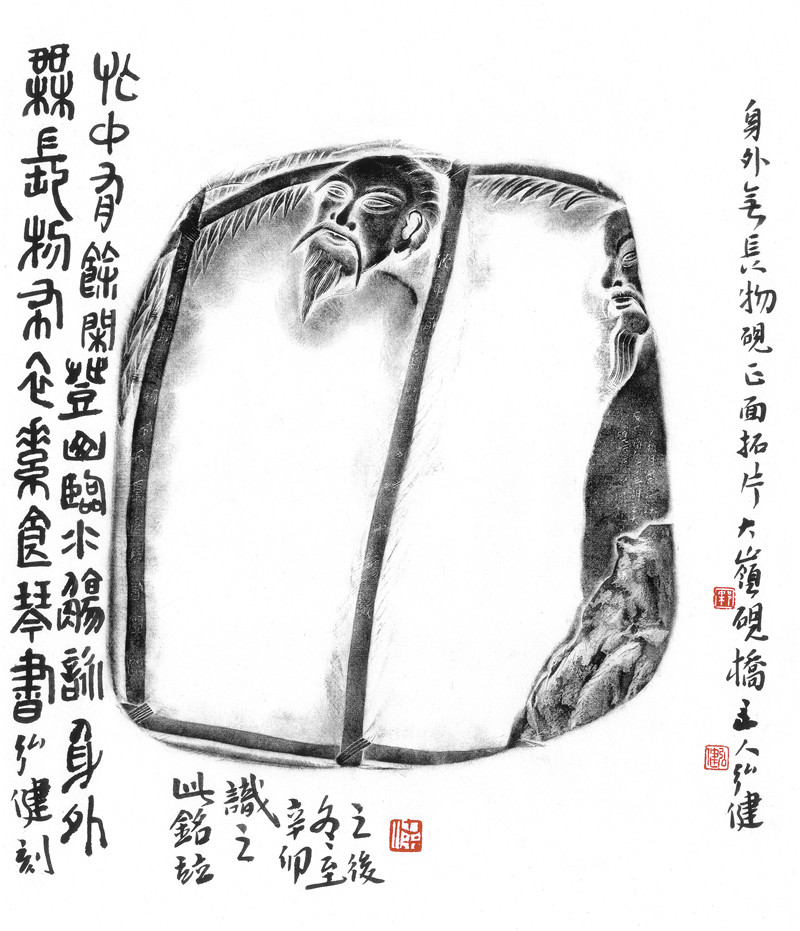 身外無長物硯正面拓片大嶺硯橋主人弘健
弘健
忙中有餘閑登山臨水觴詠身外
無長物布衣素食琴書弘健刻
此銘竝
識之
辛卯
冬至
之後